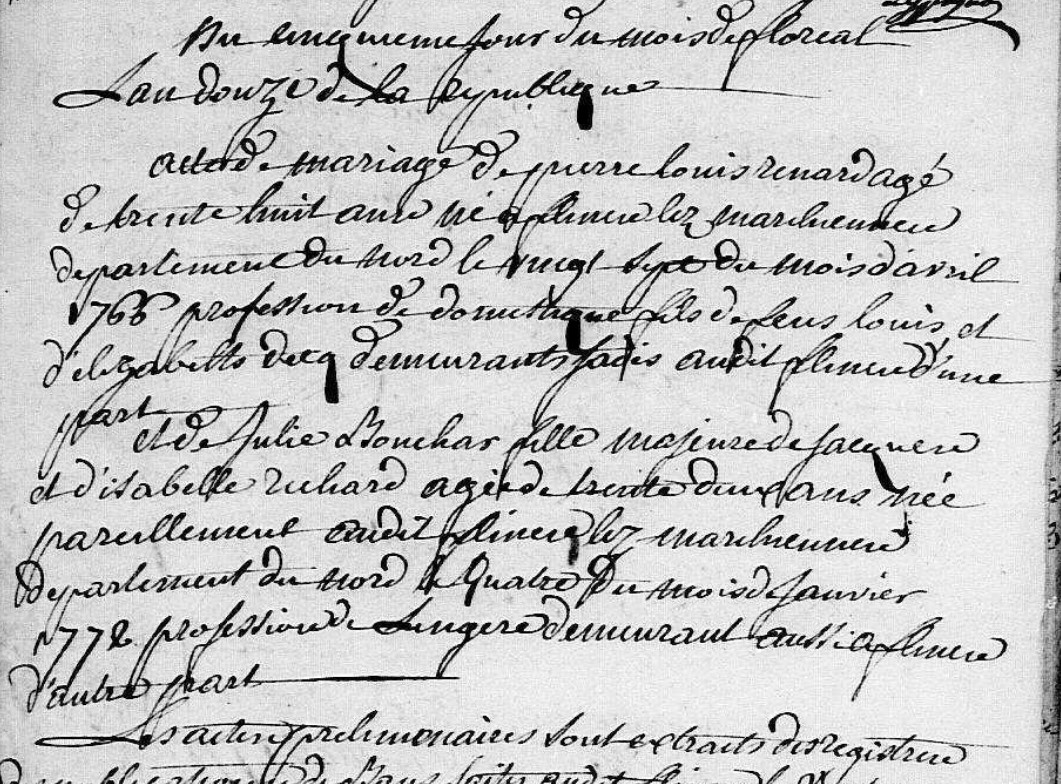 Du cinquieme jour du mois de floreal
L'an douze de la republique
acte de mariage de pierre louis renard agé
de trente huit ans né a flines lez marchiennes
departement du nord le vingt sept du mois d'avril
1766 profession de domestique fils de feus louis et
d'elizabeth decq demeurants jadis audit flines d'une
part
et de Julie Bouchar fille majeure de jacques
et d'isabelle richard agée de trente deux ans née
pareillement audit flines lez marchiennes
departement du nord le quatre du mois de janvier
1772 profession de Lingere demeurant aussi a flines
d'autre part
Les actes preliminaires sont extraits des registres
publications de Bans faites audit flines le